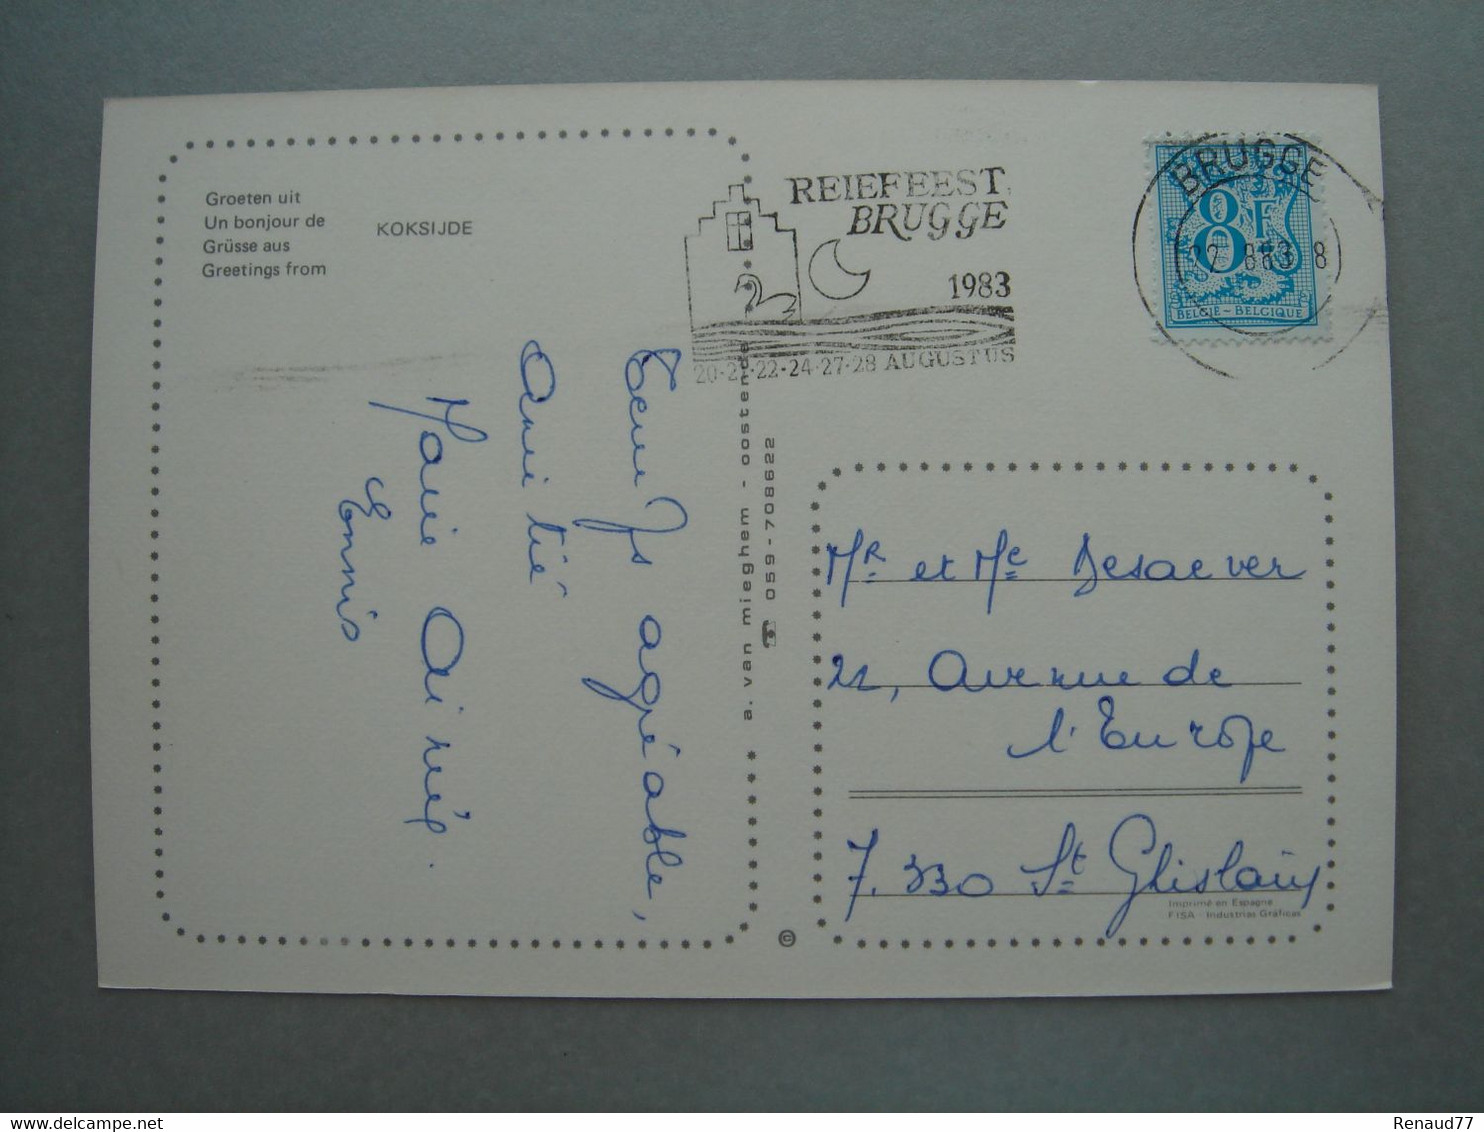 Groeten uit
Un bonjour de
Grüsse aus
Greetings from
KOKSIJDE
Temps agréable,
Amitié
Marie Aimée
Ennis
a. van mieghem - oostende
059-708622
©
REIEFEEST
BRUGGE
1983
20-21-22-24-27-28 AUGUSTUS
BRUGGE
22 883 8
8F
BELGIË - BELGIQUE
Mr et Me Desaever
22, Avenue de
l'Europe
7.330 St Ghislain
Imprimé en Espagne
FISA - Industrias Gráficas
Renaud77
delcampe.net